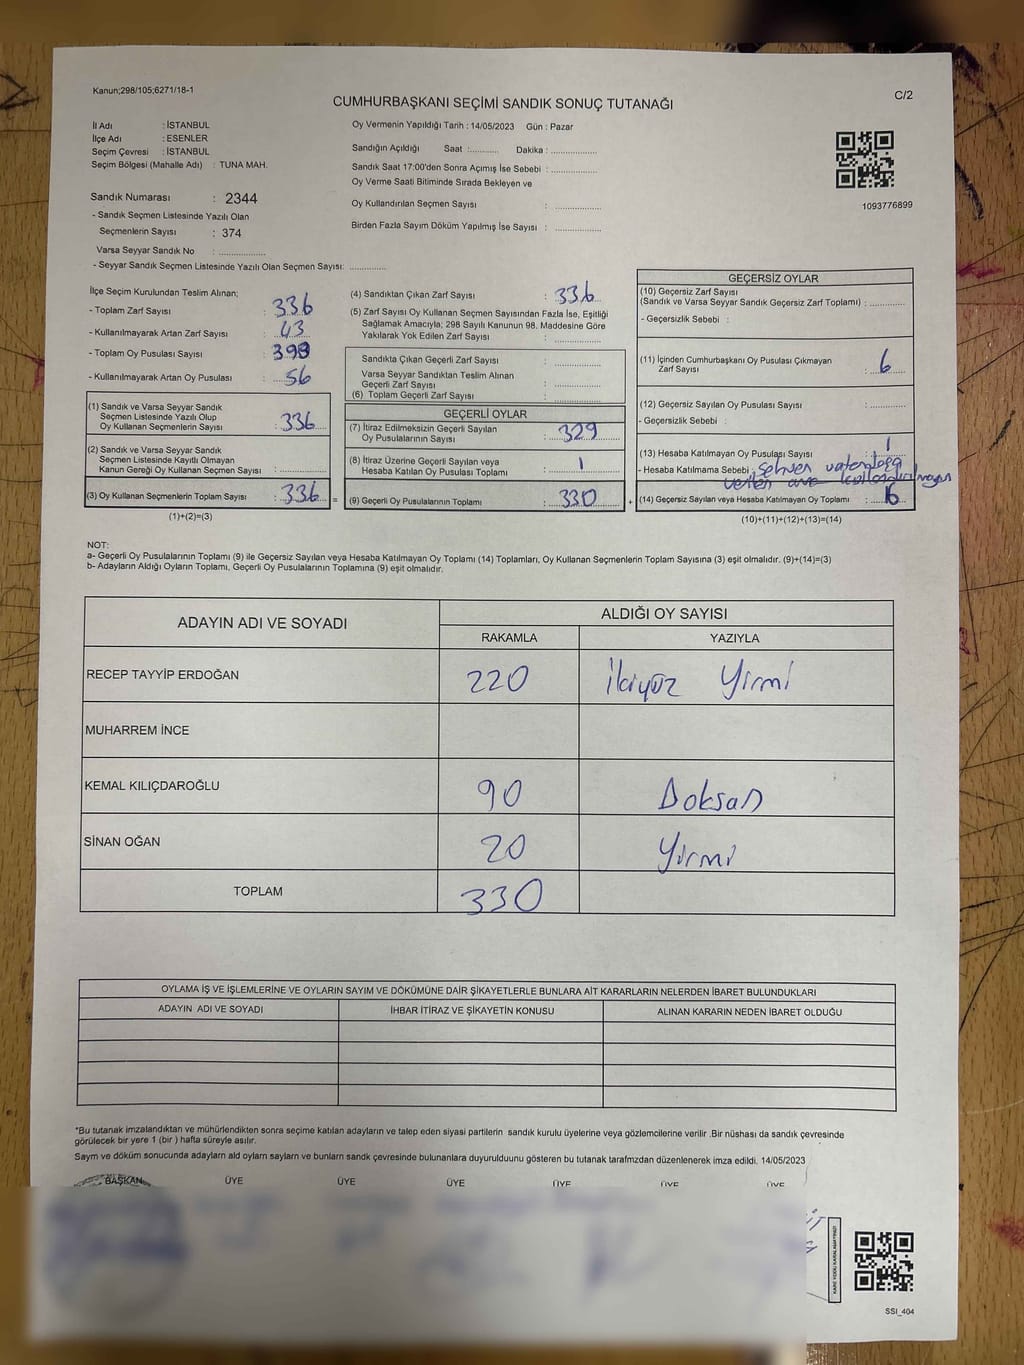 Kanun;298/105;6271/18-1
CUMHURBAŞKANI SEÇİMİ SANDIK SONUÇ TUTANAĞI
C/2
İl Adı : İSTANBUL
İlçe Adı : ESENLER
Seçim Çevresi : İSTANBUL
Seçim Bölgesi (Mahalle Adı) : TUNA MAH.
Sandık Numarası : 2344
- Sandık Seçmen Listesinde Yazılı Olan
Seçmenlerin Sayısı : 374
Varsa Seyyar Sandık No : ................
- Seyyar Sandık Seçmen Listesinde Yazılı Olan Seçmen Sayısı: ............
Oy Vermenin Yapıldığı Tarih : 14/05/2023 Gün : Pazar
Sandığın Açıldığı Saat :.......... Dakika : ................
Sandık Saat 17:00'den Sonra Açımış İse Sebebi : ................
Oy Verme Saati Bitiminde Sırada Bekleyen ve
Oy Kullandırılan Seçmen Sayısı : ................
Birden Fazla Sayım Döküm Yapılmış İse Sayısı : ................
1093776899
İlçe Seçim Kurulundan Teslim Alınan;
- Toplam Zarf Sayısı : 336
- Kullanılmayarak Artan Zarf Sayısı : 43
- Toplam Oy Pusulası Sayısı : 
- Kullanılmayarak Artan Oy Pusulası : 56
(1) Sandık ve Varsa Seyyar Sandık
Seçmen Listesinde Yazılı Olup
Oy Kullanan Seçmenlerin Sayısı : 336
(2) Sandık ve Varsa Seyyar Sandık
Seçmen Listesinde Kayıtlı Olmayan
Kanun Gereği Oy Kullanan Seçmen Sayısı : ............
(3) Oy Kullanan Seçmenlerin Toplam Sayısı : 336 =
(1)+(2)=(3)
(4) Sandıktan Çıkan Zarf Sayısı : 336
(5) Zarf Sayısı Oy Kullanan Seçmen Sayısından Fazla İse, Eşitliği
Sağlamak Amacıyla; 298 Sayılı Kanunun 98. Maddesine Göre
Yakılarak Yok Edilen Zarf Sayısı : ................
Sandıkta Çıkan Geçerli Zarf Sayısı : ................
Varsa Seyyar Sandıktan Teslim Alınan
Geçerli Zarf Sayısı : ................
(6) Toplam Geçerli Zarf Sayısı : ................
GEÇERLİ OYLAR
(7) İtiraz Edilmeksizin Geçerli Sayılan
Oy Pusulalarının Sayısı : 329
(8) İtiraz Üzerine Geçerli Sayılan veya
Hesaba Katılan Oy Pusulası Toplamı : 1
(9) Geçerli Oy Pusulalarının Toplamı : 330 +
GEÇERSİZ OYLAR
(10) Geçersiz Zarf Sayısı
(Sandık ve Varsa Seyyar Sandık Geçersiz Zarf Toplamı) : ............
- Geçersizlik Sebebi :
(11) İçinden Cumhurbaşkanı Oy Pusulası Çıkmayan
Zarf Sayısı : 6
(12) Geçersiz Sayılan Oy Pusulası Sayısı : ............
- Geçersizlik Sebebi :
(13) Hesaba Katılmayan Oy Pusulası Sayısı : 1
- Hesaba Katılmama Sebebi : sehven vatandaşa
verilen ama
(14) Geçersiz Sayılan veya Hesaba Katılmayan Oy Toplamı : 6
(10)+(11)+(12)+(13)=(14)
NOT:
a- Geçerli Oy Pusulalarının Toplamı (9) ile Geçersiz Sayılan veya Hesaba Katılmayan Oy Toplamı (14) Toplamları, Oy Kullanan Seçmenlerin Toplam Sayısına (3) eşit olmalıdır. (9)+(14)=(3)
b- Adayların Aldığı Oyların Toplamı, Geçerli Oy Pusulalarının Toplamına (9) eşit olmalıdır.
ADAYIN ADI VE SOYADI ALDIĞI OY SAYISI
RAKAMLA YAZIYLA
RECEP TAYYİP ERDOĞAN 220 İkiyüz Yirmi
MUHARREM İNCE
KEMAL KILIÇDAROĞLU 90 Doksan
SİNAN OĞAN 20 Yirmi
TOPLAM 330
OYLAMA İŞ VE İŞLEMLERİNE VE OYLARIN SAYIM VE DÖKÜMÜNE DAİR ŞİKAYETLERLE BUNLARA AİT KARARLARIN NELERDEN İBARET BULUNDUKLARI
ADAYIN ADI VE SOYADI İHBAR İTİRAZ VE ŞİKAYETİN KONUSU ALINAN KARARIN NEDEN İBARET OLDUĞU
*Bu tutanak imzalandıktan ve mühürlendikten sonra seçime katılan adayların ve talep eden siyasi partilerin sandık kurulu üyelerine veya gözlemcilerine verilir .Bir nüshası da sandık çevresinde
görülecek bir yere 1 (bir ) hafta süreyle asılır.
Saym ve döküm sonucunda adaylarn ald oylarn saylarn ve bunlarn sandk çevresinde bulunanlara duyurulduunu gösteren bu tutanak tarafmzdan düzenlenerek imza edildi. 14/05/2023
BAŞKAN ÜYE ÜYE ÜYE ÜYE ÜYE ÜYE
SSI_404